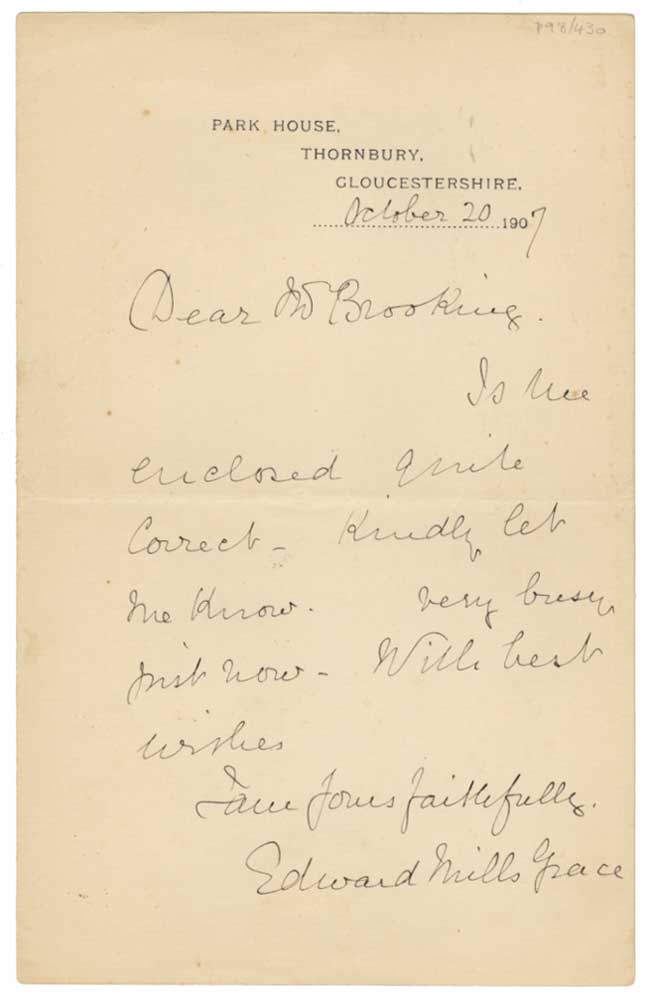 798/430
PARK HOUSE,
THORNBURY,
GLOUCESTERSHIRE.
October 20 1907
Dear Mr Brooking.
Is the
enclosed quite
Correct - Kindly let
me Know. very busy
just now - With best
wishes
I am Yours faithfully.
Edward Mills Grace